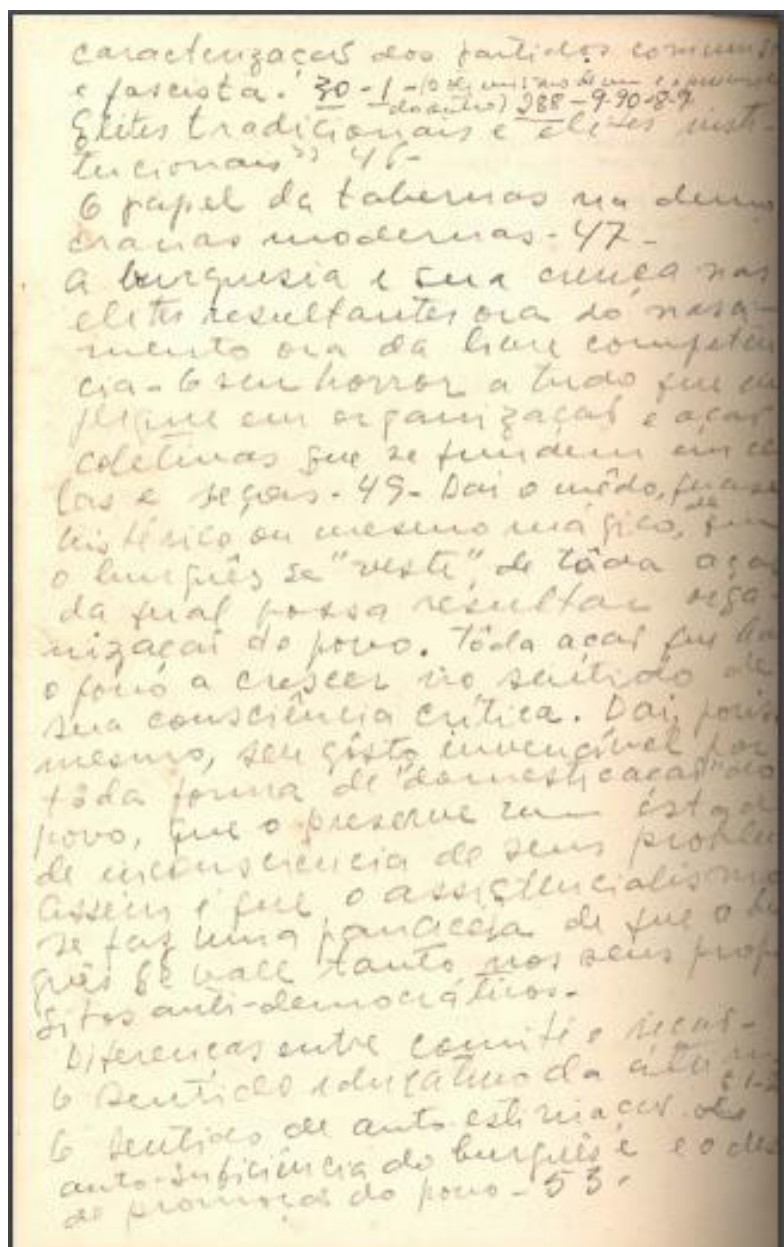 caracterização dos partidos comunis
e fascista. 30-1- 288-9-90-8-9
Elites tradicionais e elites insti-
tucionais" 46-
O papel da tabernas na demo
cracias modernas-47-
A burguesia e sua crença nas
elites resultantes ora do nasci-
mento ora da livre competên
cia-O seu horror a tudo que im
plique em organização e ação
coletivas que se fundem em cé
las e seções-49-Daí o mêdo, quase
histérico ou mesmo mágico, de que
o burguês se "veste", de tôda ação
da qual possa resultar orga-
nização do povo. Tôda ação que
o povo a crescer no sentido de
sua consciência crítica. Daí, por is
mesmo, seu gôsto invencível por
tôda forma de "domesticação" do
povo, que o preserve num estado
de inconsciência de seus proble
Assim é que o assistencialismo
se faz uma panacéia de que o bu
guês se vale tanto nos seus propó
sitos anti-democráticos.
Diferenças entre comitê e seção-
O sentido educativo da
O sentido de auto-estimação de
auto-suficiência do burguês e o de
de promoção do povo-53.